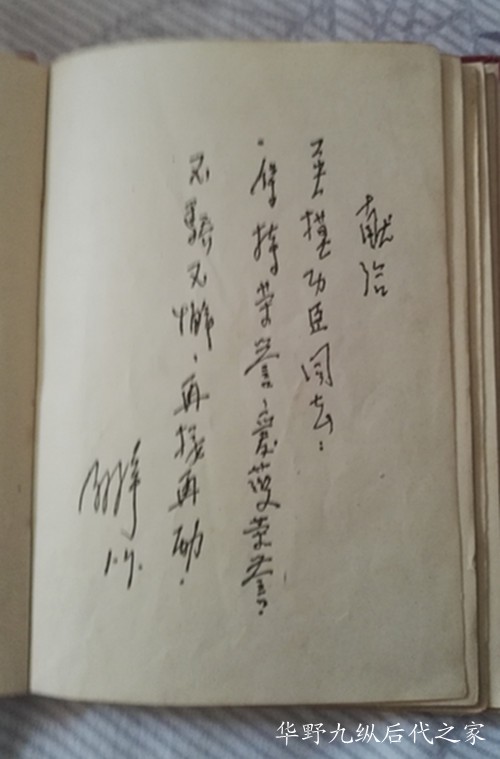 献给
英模功臣同志：
保持荣誉，爱护荣誉。
不骄不懈，再接再励。
1.7.
华野九纵后代之家